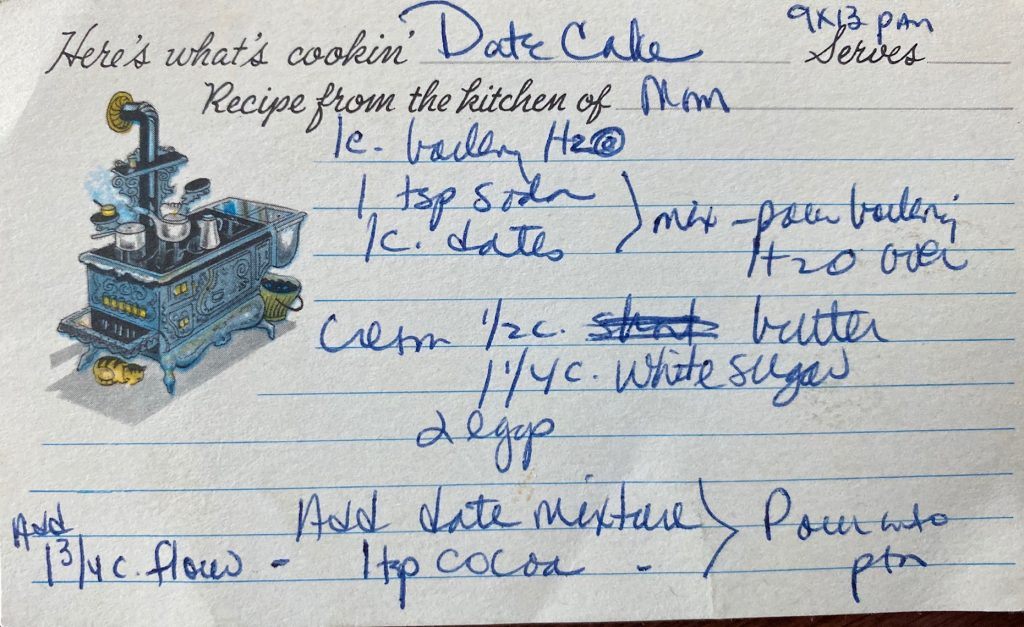 9x13 pan
Here's what's cookin' Date Cake Serves
Recipe from the kitchen of Mom
1c. boiling H2O
1 tsp soda
1c. dates
mix - pour boiling
H2O over
Cream 1/2c. butter
1 1/4 c. white sugar
2 eggs
Add date mixture
Add
1 3/4 c. flour - 1 tsp cocoa -
Pour into
pan